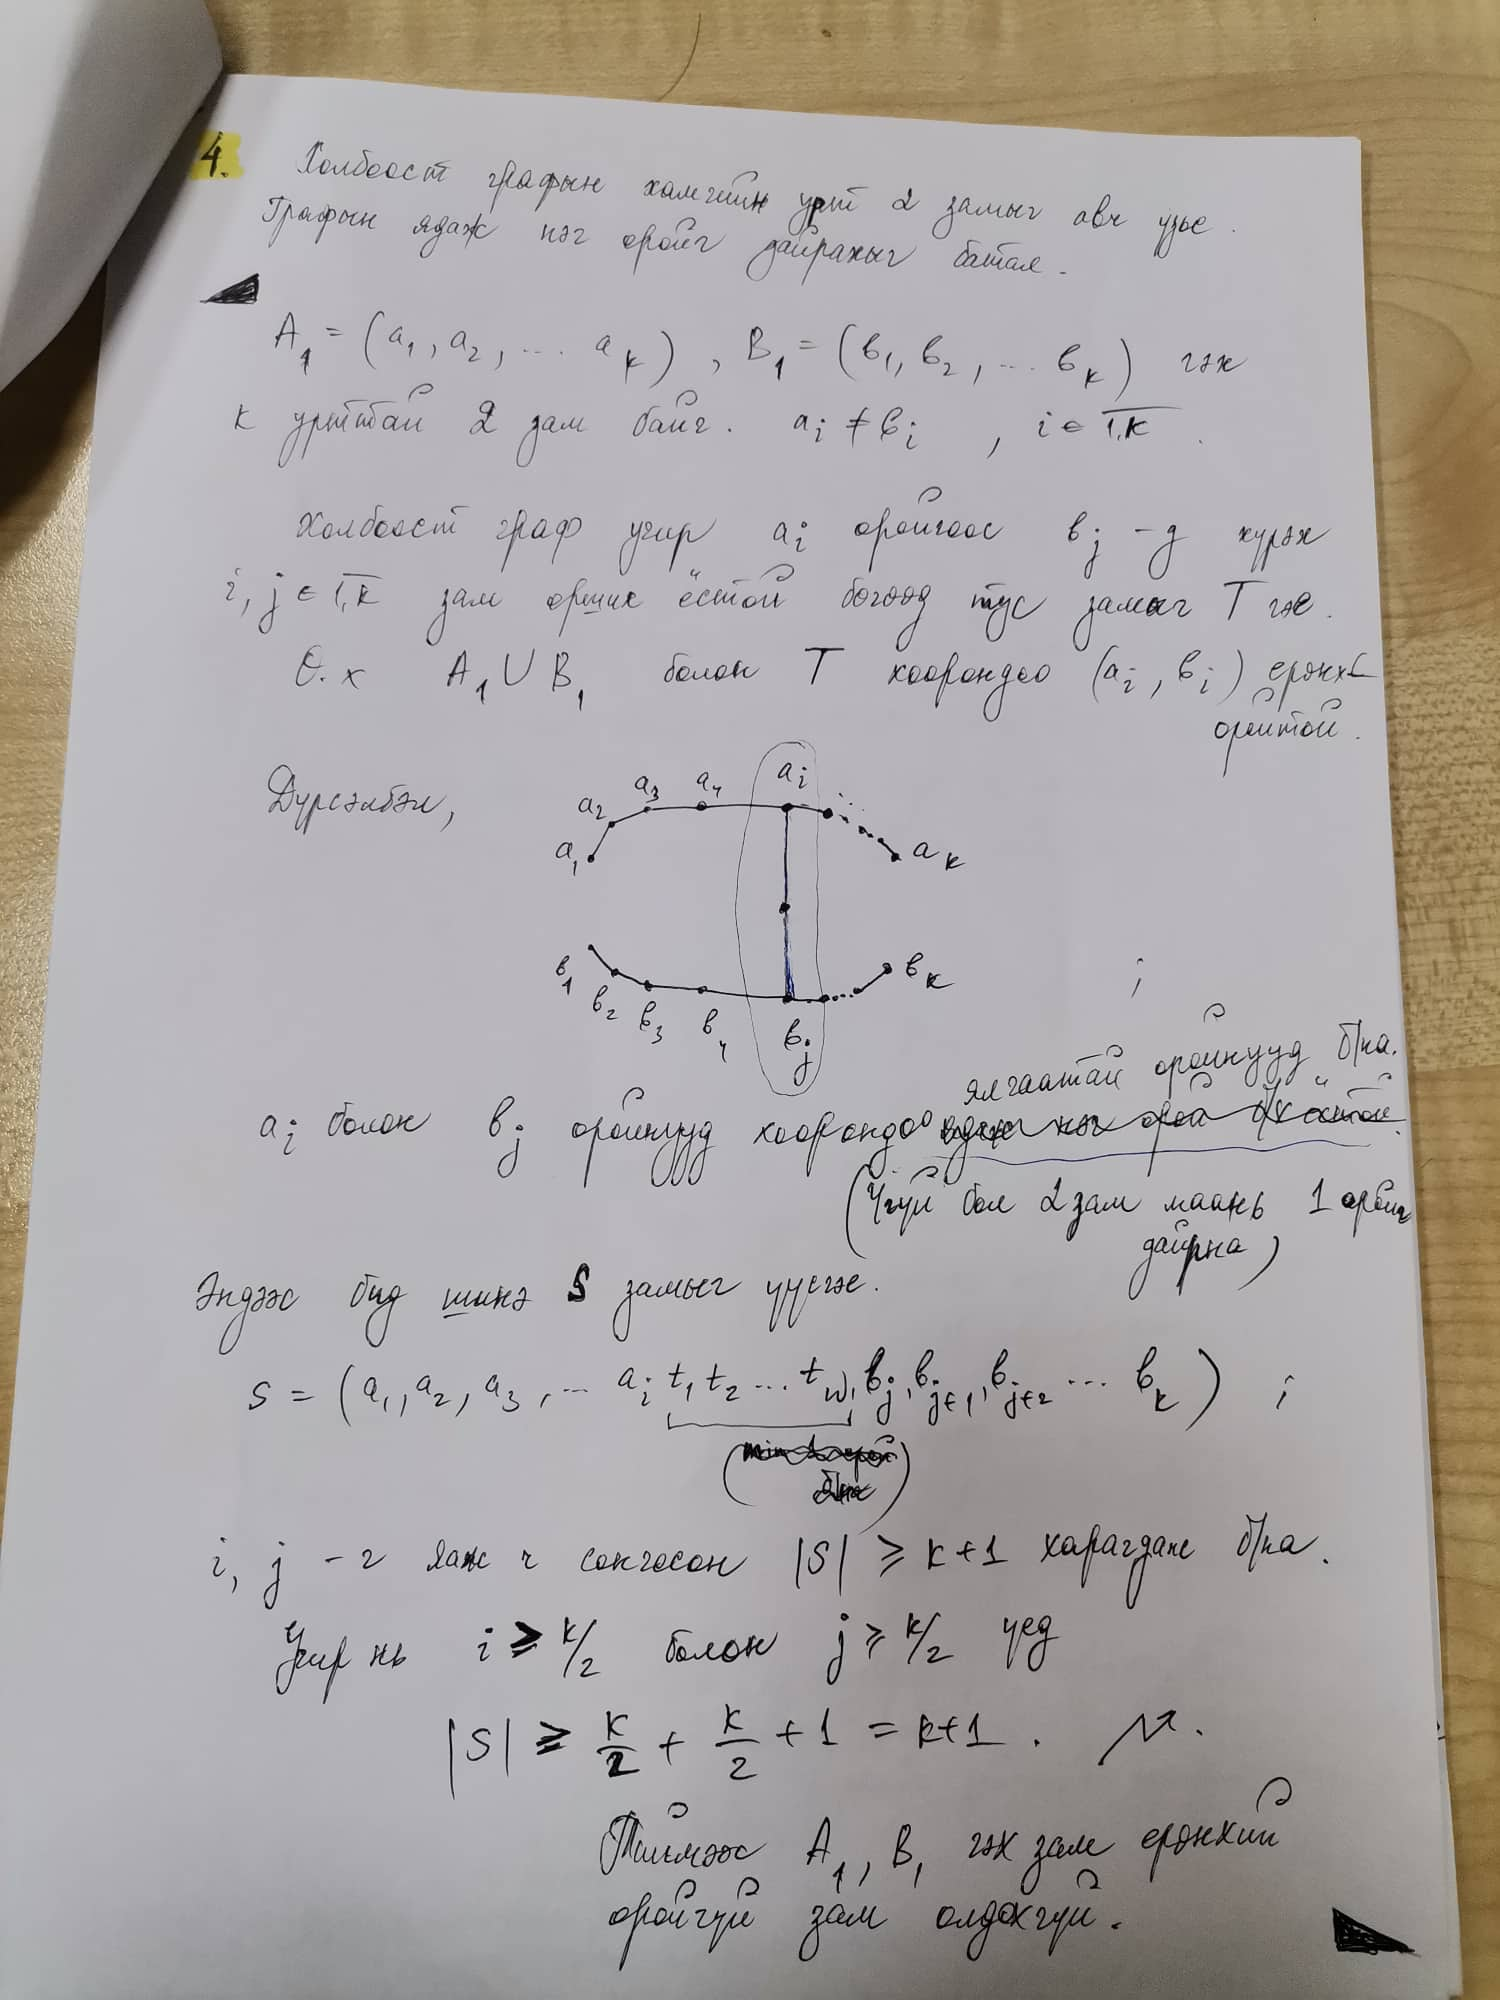 4. Холбоост графын хамгийн урт 2 замыг авч үзье.
Графын ядаж нэг оройг дайрахыг батал.
A₁ = (a₁, a₂, ... aₖ), B₁ = (в₁, в₂, ... вₖ) гэж
k урттай 2 зам байг. aᵢ ≠ вᵢ, i ∈ 1,k.
Холбоост граф учир aᵢ оройгоос вⱼ -д хүрэх
i, j ∈ 1,k зам орших ёстой бөгөөд тус замыг T гэе.
Ө.х A₁ ∪ B₁ болон T хоорондоо (aᵢ, вⱼ) ерөнхий
оройтой.
Дүрсэлбэл,
a₁ a₂ a₃ a₄ aᵢ aₖ
в₁ в₂ в₃ в₄ вⱼ вₖ ;
ялгаатай оройнууд б/на.
aᵢ болон вⱼ оройнууд хоорондоо
(Үгүй бол 2 зам маань 1 оройг
дайрна)
Эндээс бид шинэ S замыг үүсгэе.
S = (a₁, a₂, a₃, ... aᵢ t₁ t₂ ... t_w, вⱼ, вⱼ₊₁, вⱼ₊₂ ... вₖ) ;
i, j -г яаж ч сонгосон |S| ≥ k+1 харагдаж б/на.
Учир нь i ≥ k/2 болон j ≥ k/2 үед
|S| ≥ k/2 + k/2 + 1 = k+1.
Тиймээс A₁, B₁ гэх зам ерөнхий
оройгүй зам олдохгүй.